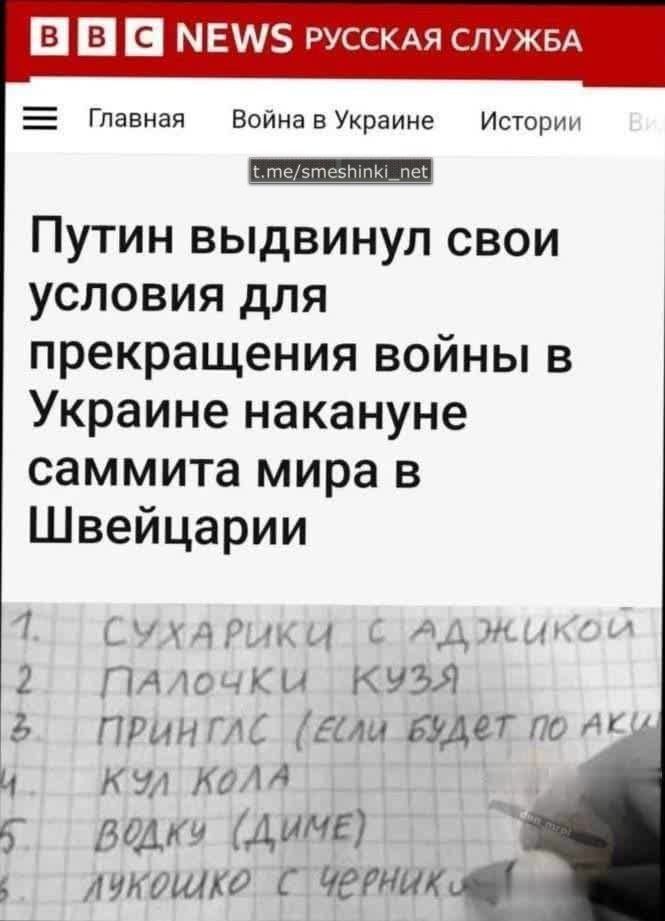 BBC NEWS РУССКАЯ СЛУЖБА
Главная Война в Украине Истории Ви
t.me/smeshinki_net
Путин выдвинул свои
условия для
прекращения войны в
Украине накануне
саммита мира в
Швейцарии
1. СУХАРИКИ С АДЖИКОЙ
2 ПАЛОЧКИ КУЗЯ
3 ПРИНГЛС (ЕСЛИ БУДЕТ ПО АКЦИ
4. КУЛ КОЛА
5 ВОДКУ (ДИМЕ)
6. ЛУКОШКО С ЧЕРНИК